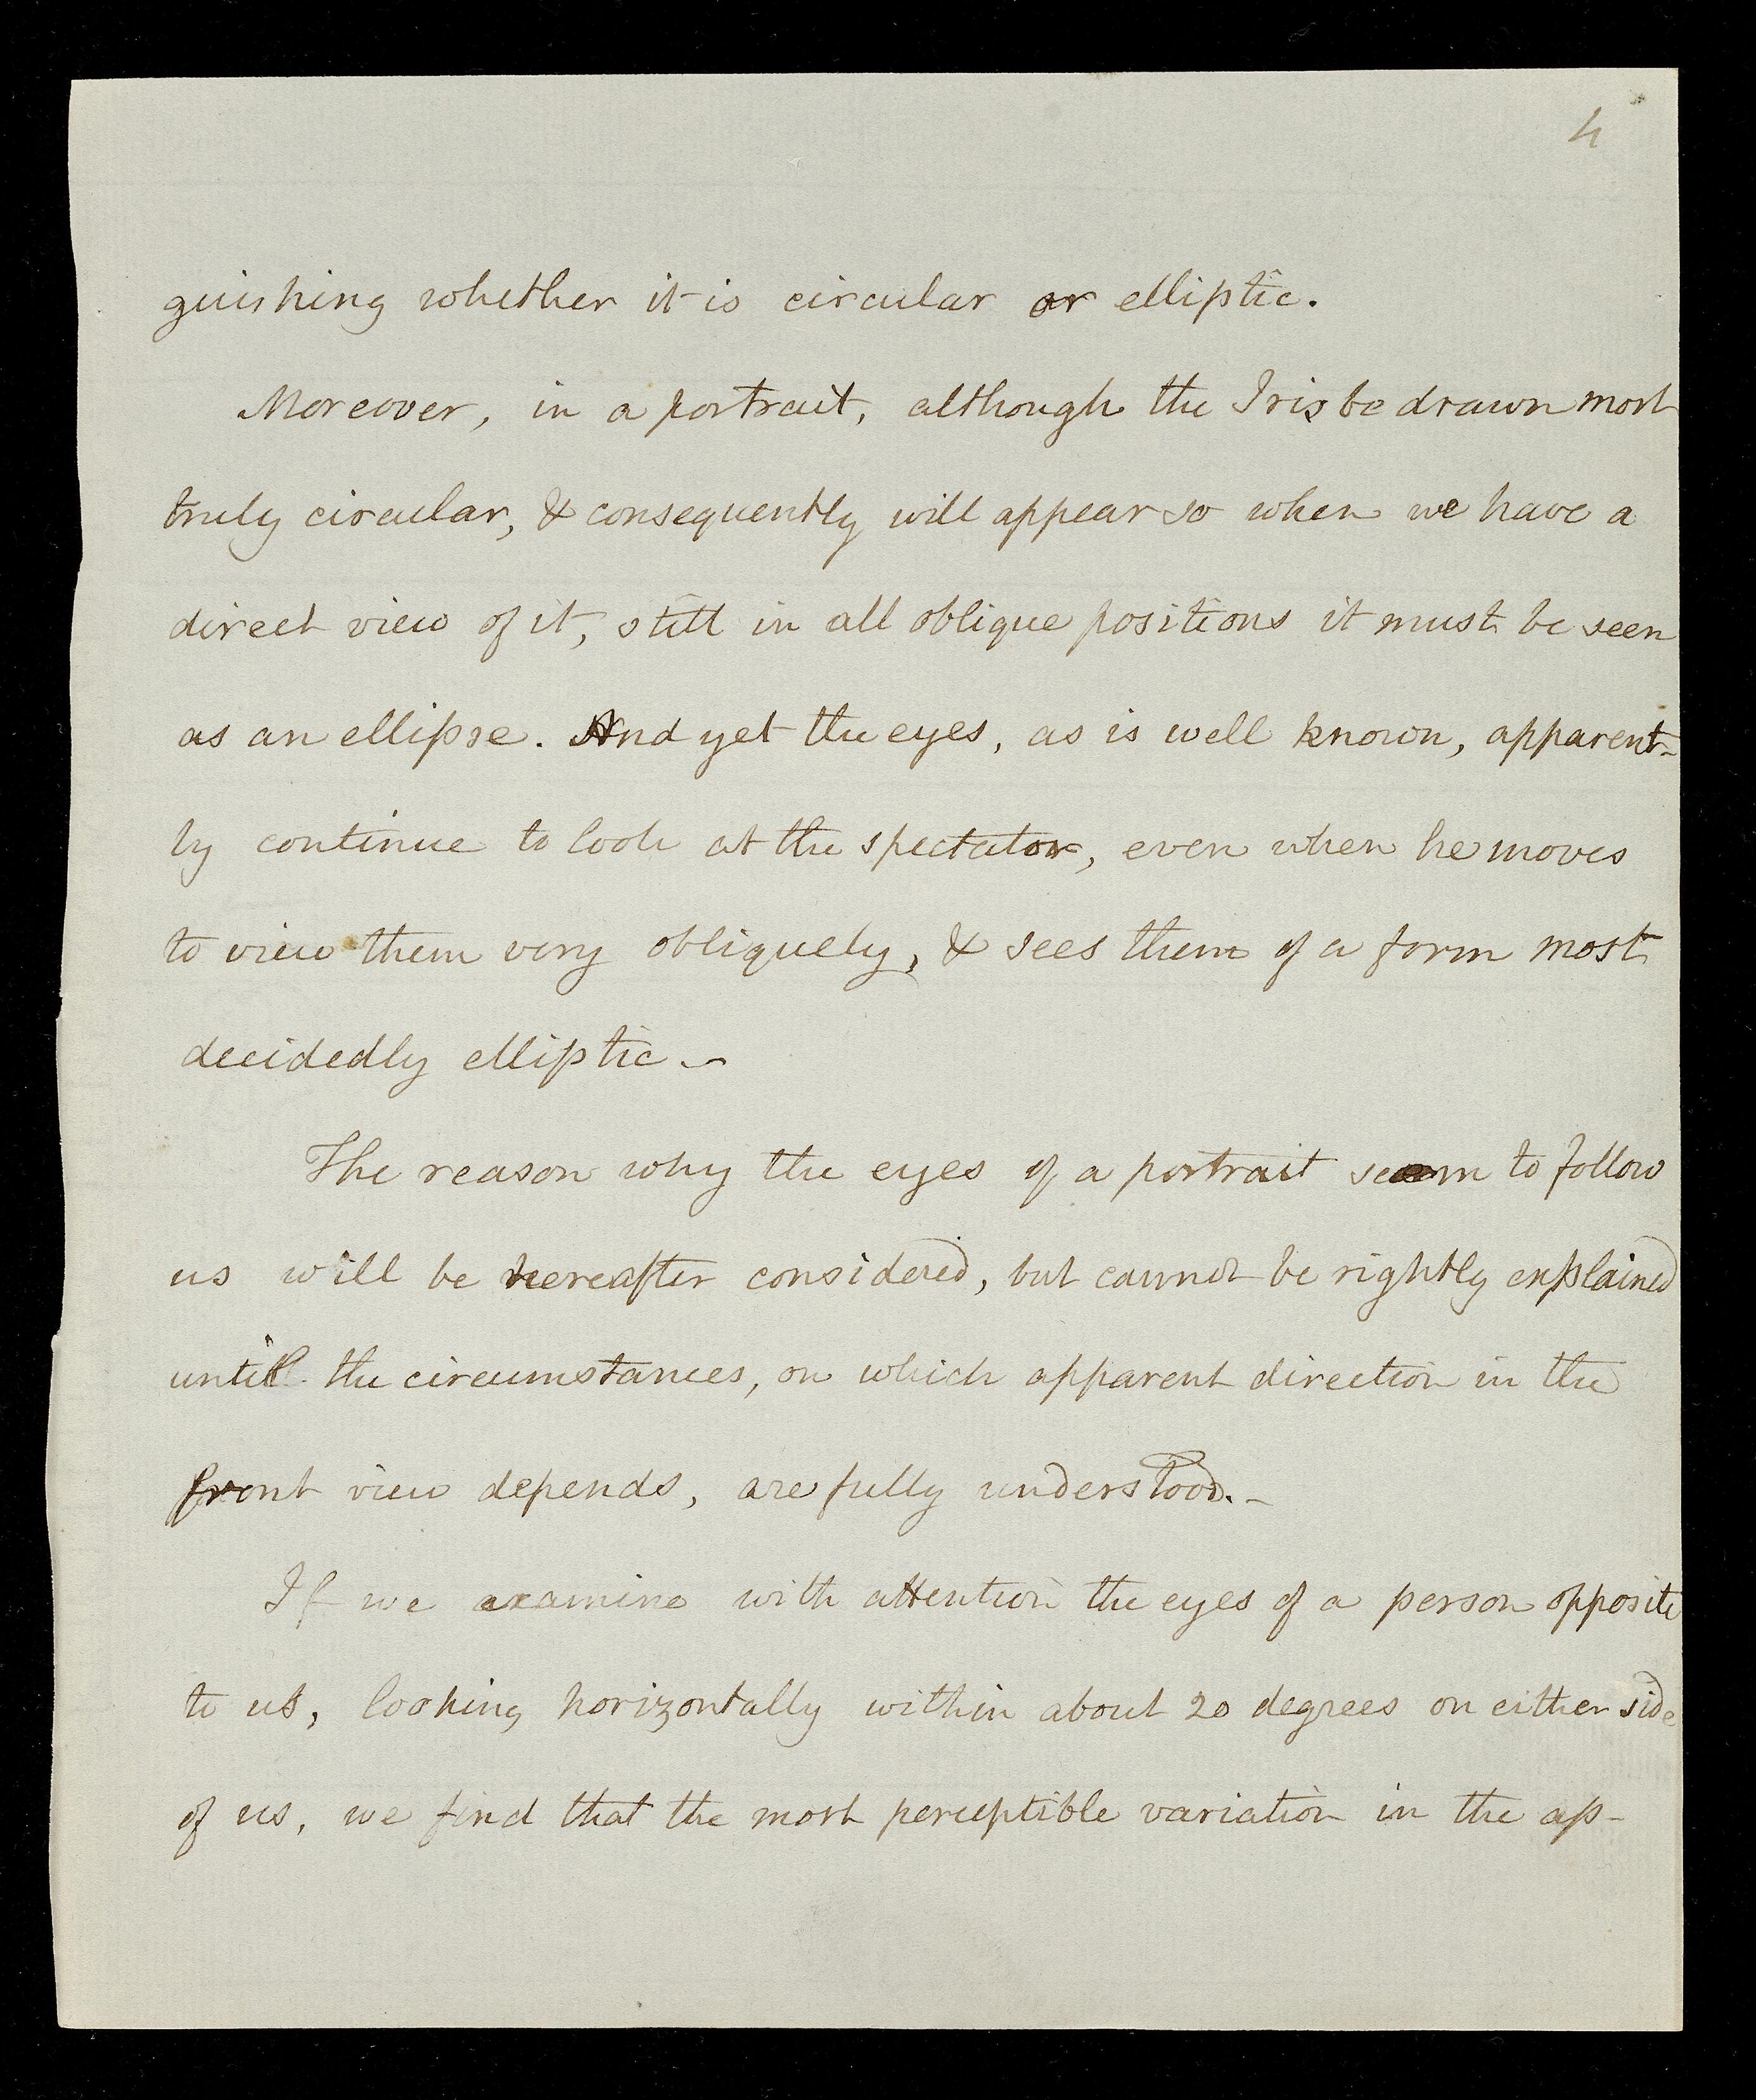 4
guishing whether it is circular or elliptic.
Moreover, in a portrait, although the Iris be drawn most
truly circular, & consequently will appear so when we have a
direct view of it, still in all oblique positions it must be seen
as an ellipse. And yet the eyes, as is well known, apparent-
ly continue to look at the spectator, even when he moves
to view them very obliquely, & sees them of a form most
decidedly elliptic. -
The reason why the eyes of a portrait seem to follow
us will be hereafter considered, but cannot be rightly explained
until the circumstances, on which apparent direction in the
front view depends, are fully understood. -
If we examine with attention the eyes of a person opposite
to us, looking horizontally within about 20 degrees on either side
of us, we find that the most perceptible variation in the ap-